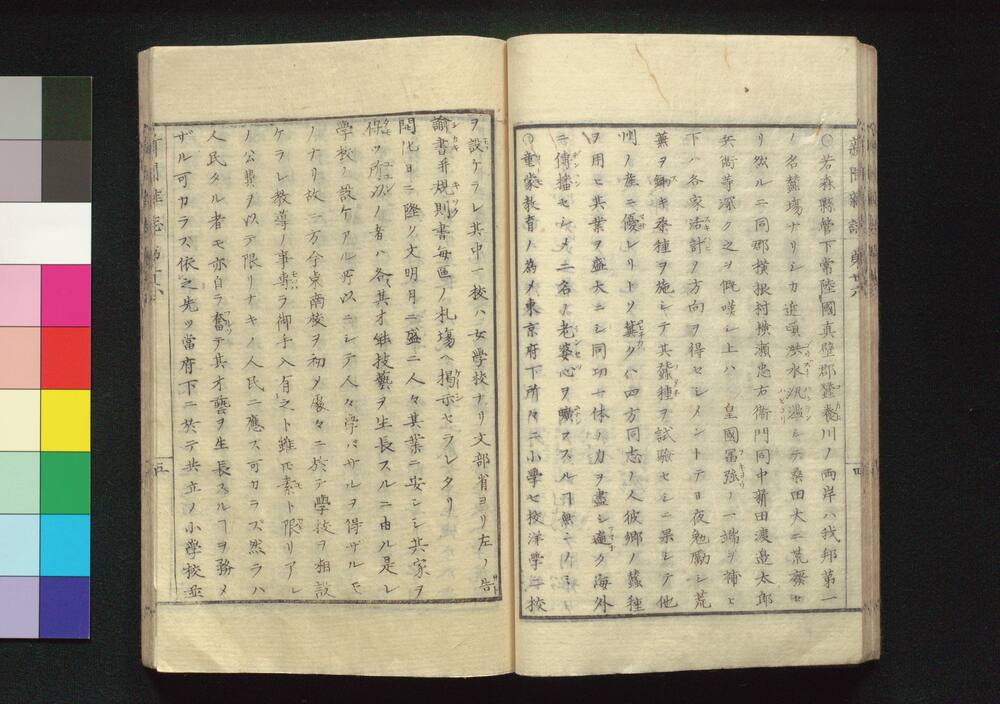 ○若森縣管下常陸國真壁郡蠶養川ノ両岸ハ我邦第一
ノ名蠶塲ナリシカ近頃洪水汎濫シテ桑田大ニ荒蕪セ
リ然ルニ同郡横根村横瀬忠右衛門同中新田渡邉太郎
兵衛等深ク之ヲ慨嘆シ上ハ 皇國冨強ノ一端ヲ補ヒ
下ハ各家活計ノ方向ヲ得セシメントテ日夜勉勵シ荒
蕪ヲ鋤キ桑種ヲ施シテ其蠶種ヲ試験セシニ果シテ他
州ノ産ニ優レリトソ冀クハ四方同志ノ人彼郷ノ蠶種
ヲ用ヒ其業ヲ盛大ニシ同功一体ノ力ヲ盡シ遍ク海外
ニ傳播セシメ二名ノ老婆心ヲ曠スルヿ無ラ
○童蒙教育ノ為メ東京府下所々ニ小學七校洋學二校
ヲ設ケラレ其中一校ハ女學校ナリ文部省ヨリ左ノ告
諭書并規則書毎區ノ札塲ヘ掲示セラレタリ
開化日ニ隆ク文明月ニ盛ニ人々其業ニ安シ其家ヲ
保ツ所以ノ者ハ各其才能技藝ヲ生長スルニ由ル是レ
學校ノ設ケアル所以ニシテ人々學ハサルヲ得ザルモ
ノナリ故ニ方今東南校ヲ初メ處々ニ於テ學校ヲ相設
ケラレ教導ノ事専ラ御手入有之ト雖𪜈素ト限リアレ
ノ公費ヲ以テ限リナキノ人民ニ應ス可カラズ然ラハ
人民タル者モ亦自ラ奮テ其才藝ヲ生長スルヿヲ務メ
ザル可カラズ依之先ツ當府下ニ於テ共立ノ小學校並